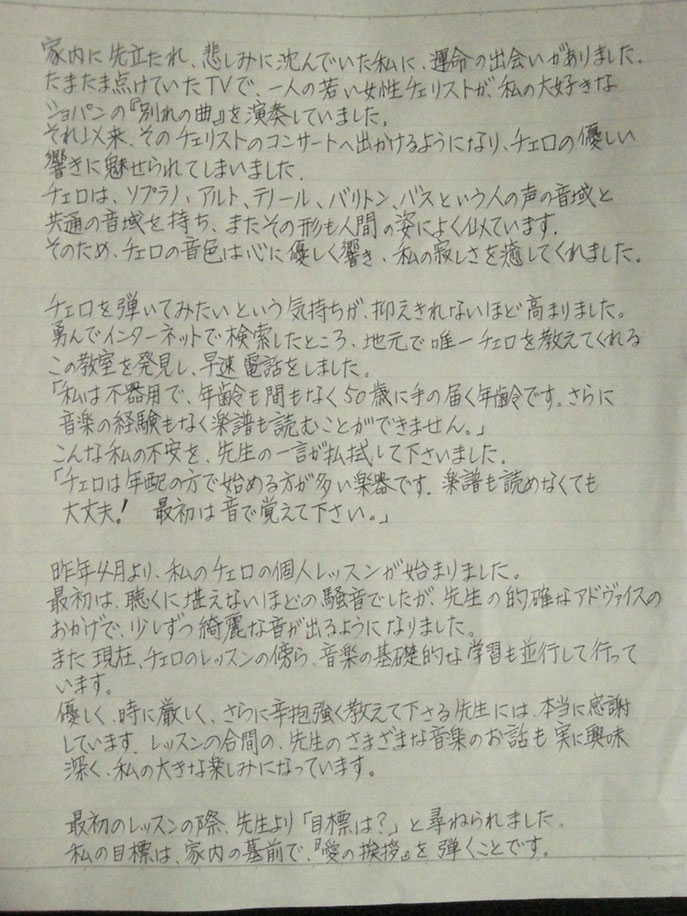 家内に先立たれ、悲しみに沈んでいた私に、運命の出会いがありました。
たまたま点けていたTVで、一人の若い女性チェリストが、私の大好きな
ショパンの『別れの曲』を演奏していました。
それ以来、そのチェリストのコンサートへ出かけるようになり、チェロの優しい
響きに魅せられてしまいました。
チェロは、ソプラノ、アルト、テノール、バリトン、バスという人の声の音域と
共通の音域を持ち、またその形も人間の姿によく似ています。
そのため、チェロの音色は心に優しく響き、私の寂しさを癒してくれました。
チェロを弾いてみたいという気持ちが、抑えきれないほど高まりました。
勇んでインターネットで検索したところ、地元で唯一チェロを教えてくれる
この教室を発見し、早速電話をしました。
「私は不器用で、年齢も間もなく50歳に手の届く年齢です。さらに
音楽の経験もなく楽譜も読むことができません。」
こんな私の不安を、先生の一言が払拭して下さいました。
「チェロは年配の方で始める方が多い楽器です。楽譜も読めなくても
大丈夫! 最初は音で覚えて下さい。」
昨年4月より、私のチェロの個人レッスンが始まりました。
最初は、聴くに堪えないほどの騒音でしたが、先生の的確なアドヴァイスの
おかげで、少しずつ綺麗な音が出るようになりました。
また現在、チェロのレッスンの傍ら、音楽の基礎的な学習も並行して行って
います。
優しく、時に厳しく、さらに辛抱強く教えて下さる先生には、本当に感謝
しています。レッスンの合間の、先生のさまざまな音楽のお話も実に興味
深く、私の大きな楽しみになっています。
最初のレッスンの際、先生より「目標は?」と尋ねられました。
私の目標は、家内の墓前で、『愛の挨拶』を弾くことです。